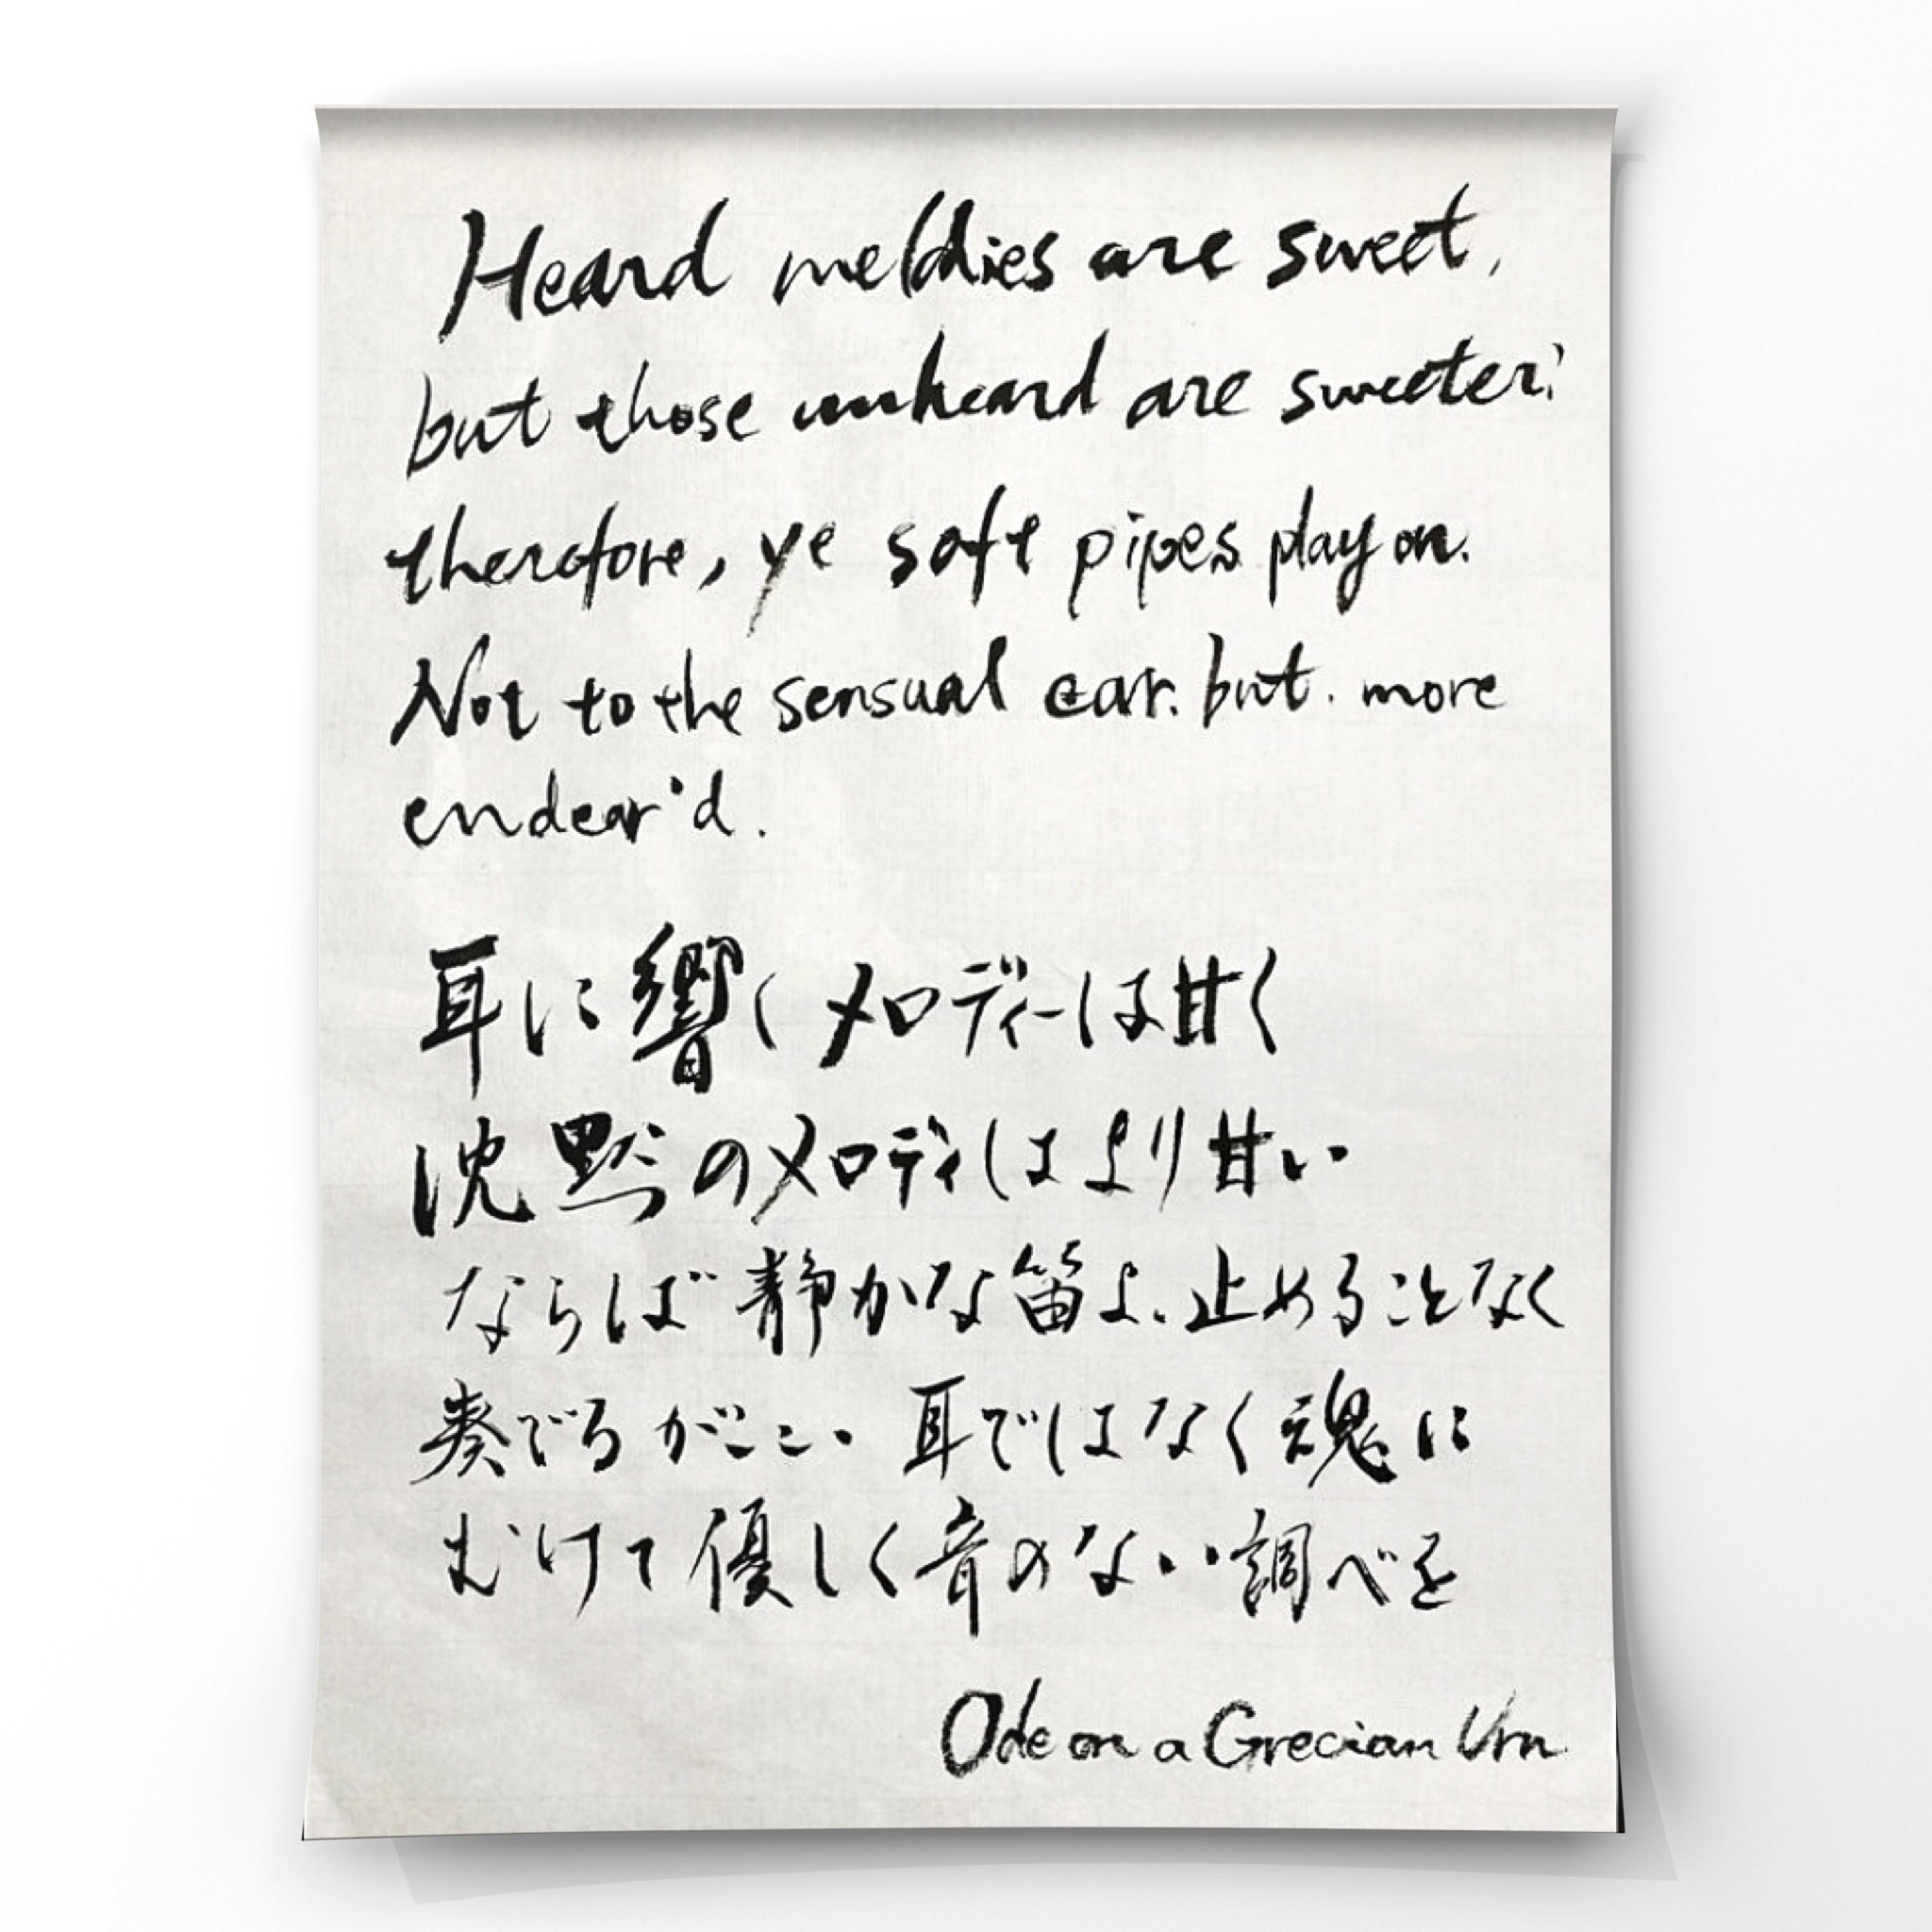 Heard melodies are sweet,
but those unheard are sweeter;
therefore, ye soft pipes play on.
Not to the sensual ear. but. more
endear'd.
耳に響くメロディーは甘く
沈黙のメロディはより甘い
ならば静かな笛よ、止めることなく
奏でるがいい 耳ではなく魂に
むけて優しく音のない調べを
Ode on a Grecian Urn